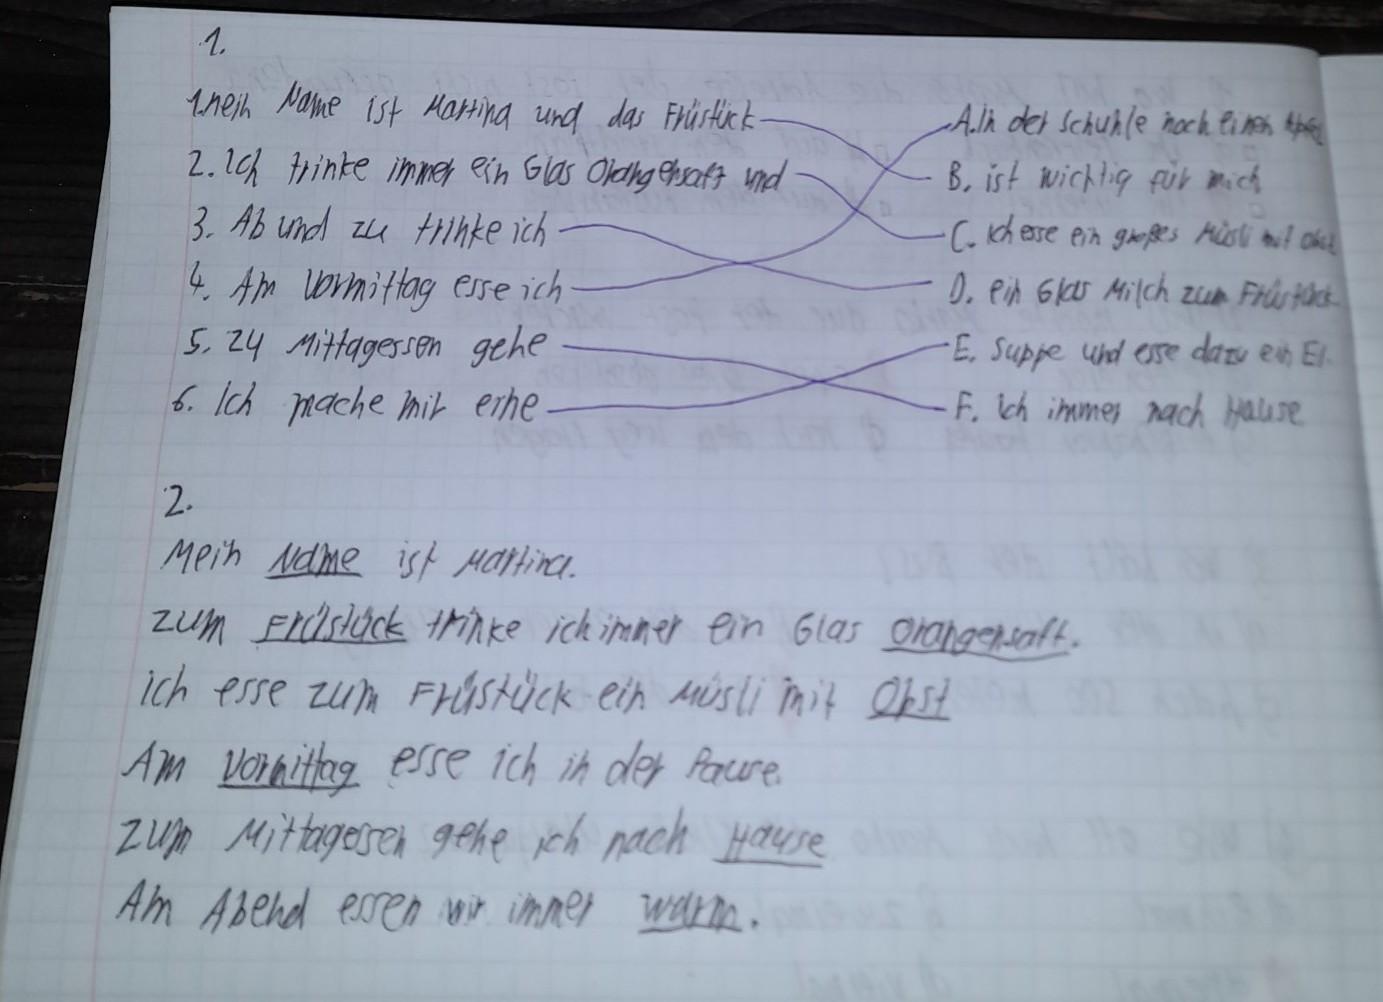 1.
1. mein Name ist Martina und das Früstück
A. In der schuhle noch einen Apfel
2. Ich trinke immer ein Glas Orangensaft und
B. ist wichtig für mich
3. Ab und zu trinke ich
C. Ich esse ein großes Müsli mit Obst
4. Am Vormittag esse ich
D. ein Glas Milch zum Früstück
5. Zu Mittagessen gehe
E. Suppe und esse dazu ein Ei.
6. Ich mache mir eine
F. Ich immer nach Hause
2.
Mein Name ist Martina.
Zum Früstück trinke ich immer ein Glas Orangensaft.
ich esse zum Früstück ein Müsli mit Obst
Am Vormittag esse ich in der Pause.
Zum Mittagessen gehe ich nach Hause
Am Abend essen wir immer warm.